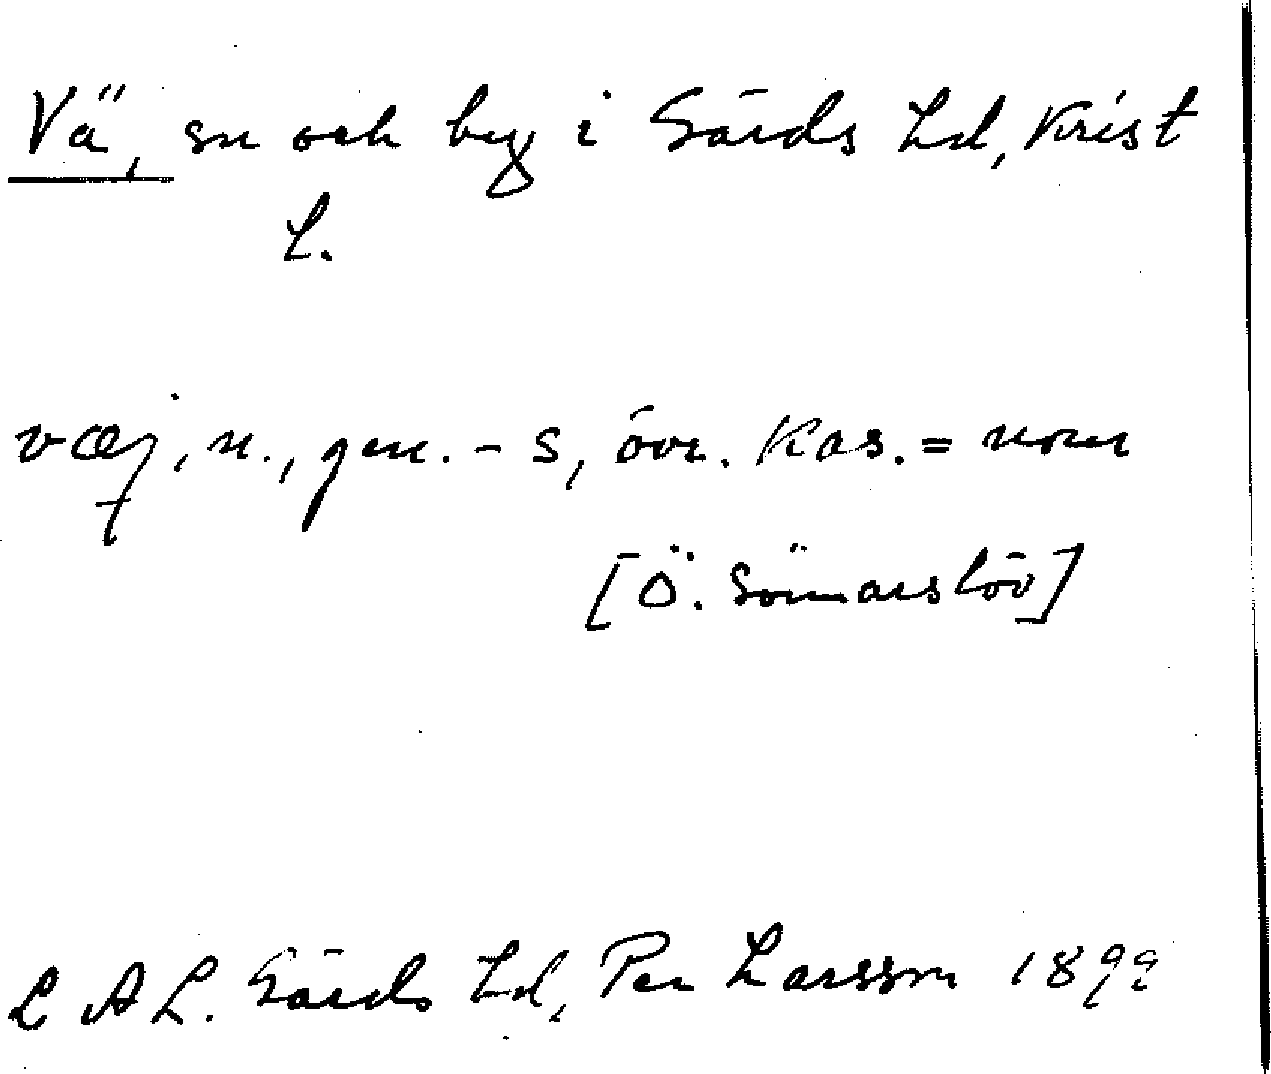 Vä, sn och by i Gärds Hd, Krist
L.
væj, n., gen. - s, övr. kas. = nom
[Ö. Sönnarslöv]
L A L. Gärds Hd, Per Larsson 1899